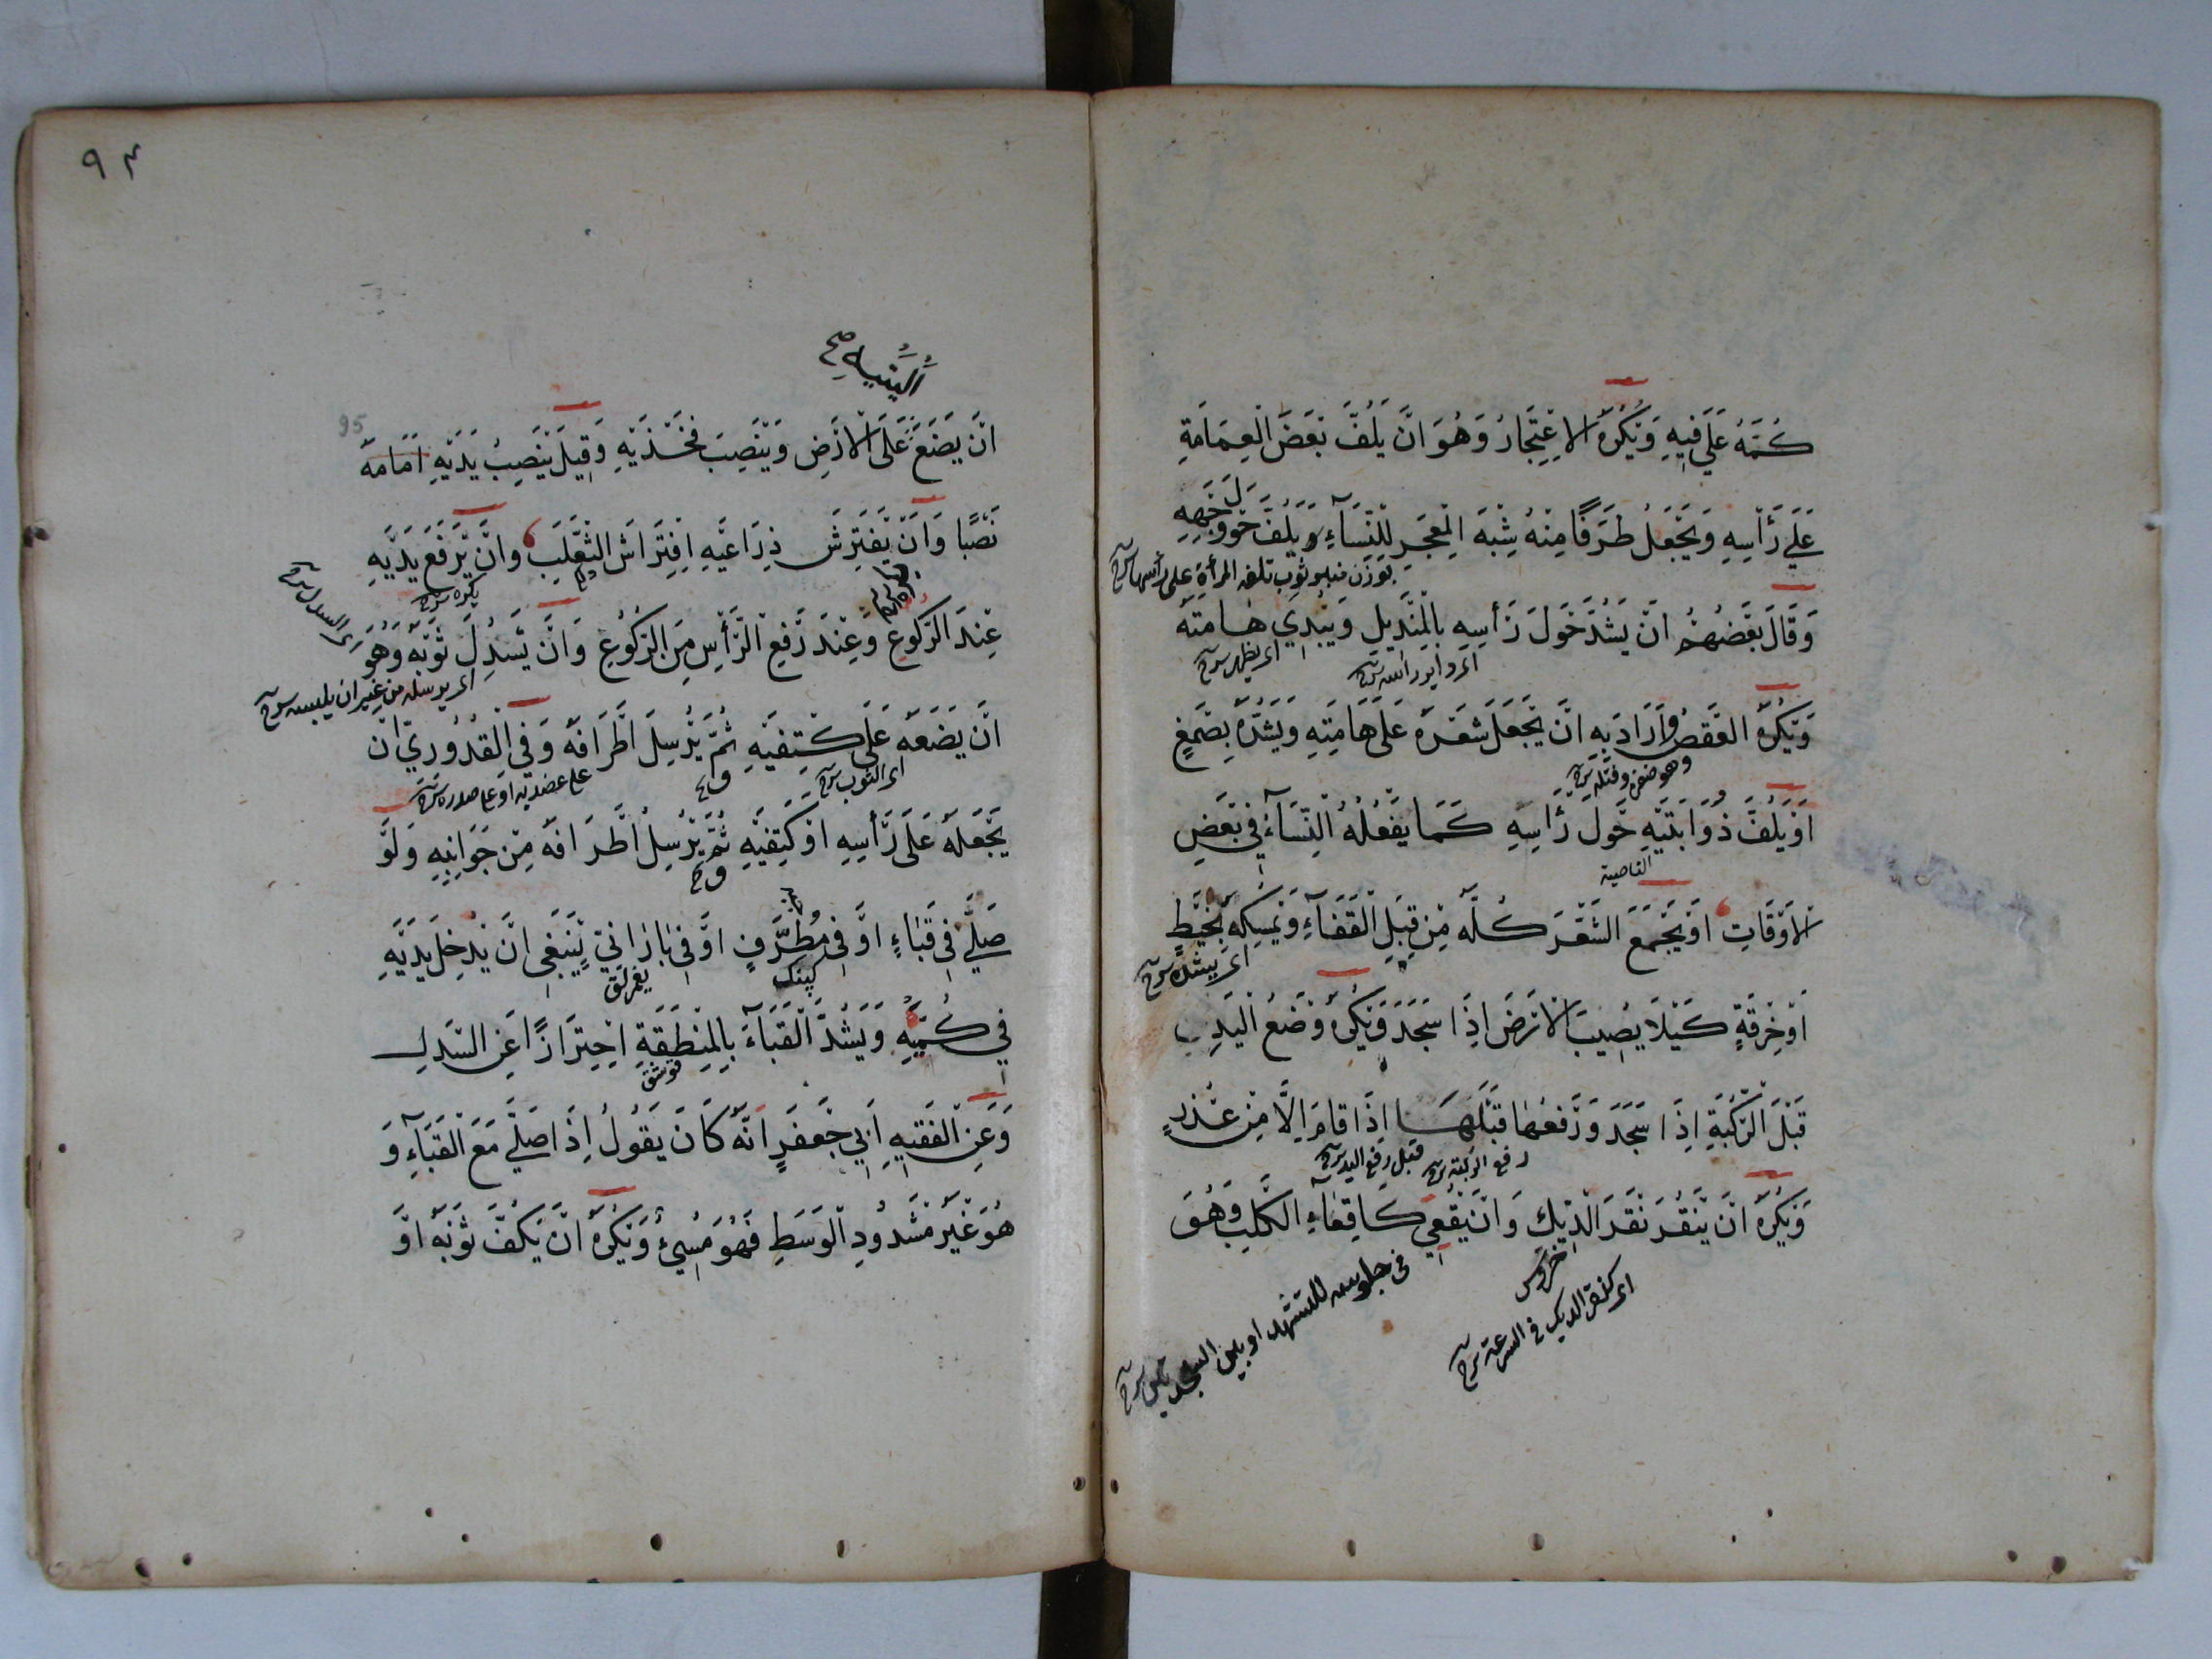 كُمَّهُ عَلَى فِيهِ وَيُكْرَهُ الْاِعْتِجَارُ وَهُوَ اَنْ يَلُفَّ بَعْضَ الْعِمَامَةِ
عَلَى رَأْسِهِ وَيَجْعَلُ طَرَفًا مِنْهُ شِبْهَ الْمِعْجَرِ لِلنِّسَآءِ وَيَلُفُّ حَوْلَ وَجْهِهِ
بوزن منبر ثوب تلفه المرأة على رأسها شرح
وَقَالَ بَعْضُهُمْ اَنْ يَشُدَّ حَوْلَ رَأْسِهِ بِالْمِنْدِيلِ وَيُبْدِي هَامَتَهُ
اى يظهر شرح
وَيُكْرَهُ الْعَقْصُ وَاَرَادَ بِهِ اَنْ يَجْعَلَ شَعْرَهُ عَلَى هَامَتِهِ وَيَشُدَّهُ بِصَمْغٍ
وهو ضفره وفتله شرح
اَوْ يَلُفَّ ذُوَابَتَيْهِ حَوْلَ رَأْسِهِ كَمَا يَفْعَلُهُ النِّسَآءُ فِي بَعْضِ
الناصية
الْاَوْقَاتِ اَوْ يَجْمَعَ الشَّعْرَ كُلَّهُ مِنْ قِبَلِ الْقَفَآءِ وَيُمْسِكَهُ بِخَيْطٍ
اى يشده شرح
اَوْ خِرْقَةٍ كَيْلَا يُصِيبَ الْاَرْضَ اِذَا سَجَدَ وَيُكْرَهُ وَضْعُ الْيَدِ
قَبْلَ الرُّكْبَةِ اِذَا سَجَدَ وَرَفْعُهَا قَبْلَهَا اِذَا قَامَ اِلَّا مِنْ عُذْرٍ
رفع الركبة شرح قبل رفع اليد شرح
وَيُكْرَهُ اَنْ يَنْقُرَ نَقْرَ الدِّيكِ وَاَنْ يُقْعِيَ كَاِقْعَاءِ الْكَلْبِ وَهُوَ
خروس
اى كنقر الديك فى السرعة شرح
فى جلوسه للتشهد او بين السجدتين شرح
٩٣
95
اَلْيَتَيْهِ صح
اَنْ يَضَعَ عَلَى الْاَرْضِ وَيَنْصِبَ فَخْذَيْهِ وَقِيلَ يَنْصِبُ يَدَيْهِ اَمَامَهُ
نَصْبًا وَاَنْ يَفْتَرِشَ ذِرَاعَيْهِ اِفْتِرَاشَ الثَّعْلَبِ وَاَنْ يَرْفَعَ يَدَيْهِ
يكره شرح
عِنْدَ الرُّكُوعِ وَعِنْدَ رَفْعِ الرَّأْسِ مِنَ الرُّكُوعِ وَاَنْ يَسْدِلَ ثَوْبَهُ وَهُوَ
اى السدل شرح
اى يرسله من غير ان يلبسه شرح
اَنْ يَضَعَهُ عَلَى كَتِفَيْهِ ثُمَّ يُرْسِلَ اَطْرَافَهُ وَفِي الْقُدُورِيّ اَنْ
اى الثوب شرح
على عضديه او على صدره شرح
يَجْعَلَهُ عَلَى رَأْسِهِ اَوْ كَتِفَيْهِ ثُمَّ يُرْسِلُ اَطْرَافَهُ مِنْ جَوَانِبِهِ وَلَوْ
صَلَّى فِي قَبَاءٍ اَوْ فِي مُطَرَّفٍ اَوْ فِي بَارَانِيّ يَنْبَغِي اَنْ يُدْخِلَ يَدَيْهِ
كپنك
يغمرلق
فِي كُمَّيْهِ وَيَشُدَّ الْقَبَآءَ بِالْمِنْطَقَةِ اِحْتِرَازًا عَنِ السَّدْلِ
قوشق
وَعَنِ الْفَقِيهِ اَبِي جَعْفَرٍ اَنَّهُ كَانَ يَقُولُ اِذَا صَلَّى مَعَ الْقَبَآءِ وَ
هُوَ غَيْرُ مَشْدُودِ الْوَسَطِ فَهُوَ مُسِيءٌ وَيُكْرَهُ اَنْ يَكُفَّ ثَوْبَهُ اَوْ